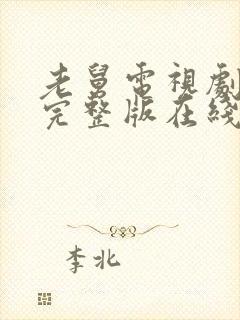 老舅電視劇
完整版在綫
李北